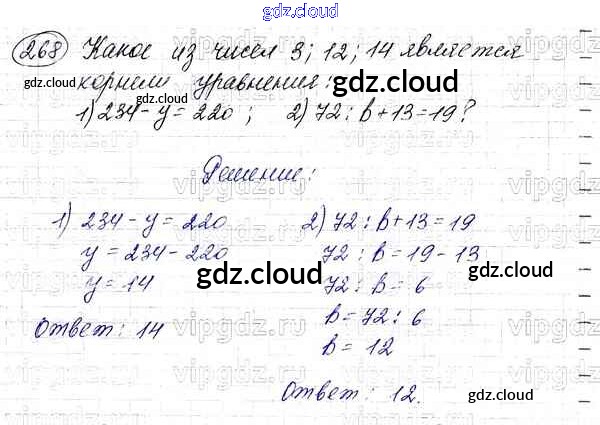 gdz.cloud
268 Какое из чисел 3; 12; 14 является
корнем уравнения:
1) 234 - y = 220; 2) 72 : b + 13 = 19?
Решение:
1) 234 - y = 220
y = 234 - 220
y = 14
Ответ: 14
2) 72 : b + 13 = 19
72 : b = 19 - 13
72 : b = 6
b = 72 : 6
b = 12
Ответ: 12.
gdz.cloud
gdz.cloud
gdz.cloud
gdz.cloud
gdz.cloud
gdz.cloud
gdz.cloud
gdz.cloud
vipgdz.ru